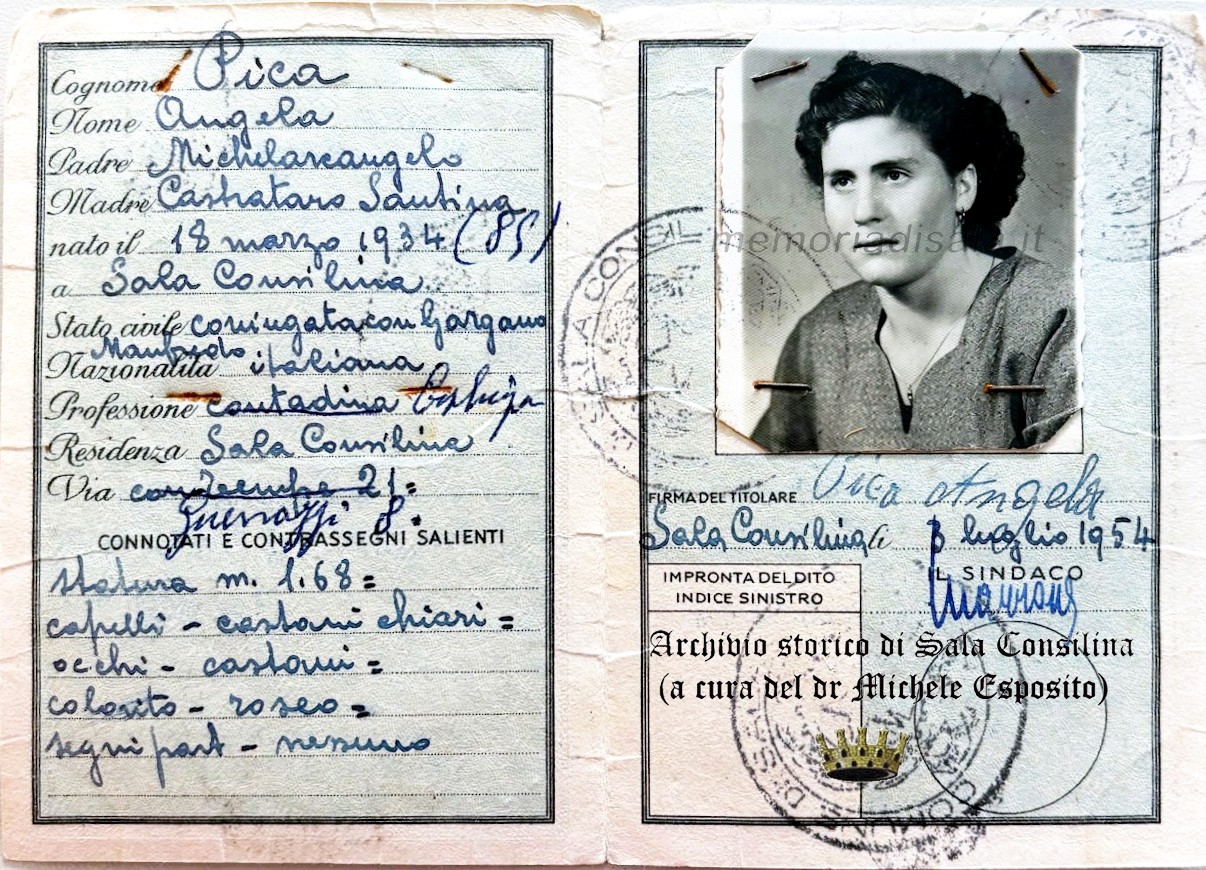 Cognome Pica
Nome Angela
Padre Michelarcangelo
Madre Castrataro Santina
nato il 18 marzo 1934 (85)
a Sala Consilina
Stato civile coniugata con Gargano
Manfredo
Nazionalità italiana
Professione contadina
Residenza Sala Consilina
Via 21=
CONNOTATI E CONTRASSEGNI SALIENTI
statura m. 1.68=
capelli - castani chiari=
occhi - castani=
colorito - roseo=
segni part - nessuno
memoriadisala.it
FIRMA DEL TITOLARE Pica Angela
Sala Consilina li 3 luglio 1954
IL SINDACO
IMPRONTA DEL DITO
INDICE SINISTRO
Archivio storico di Sala Consilina
(a cura del dr Michele Esposito)